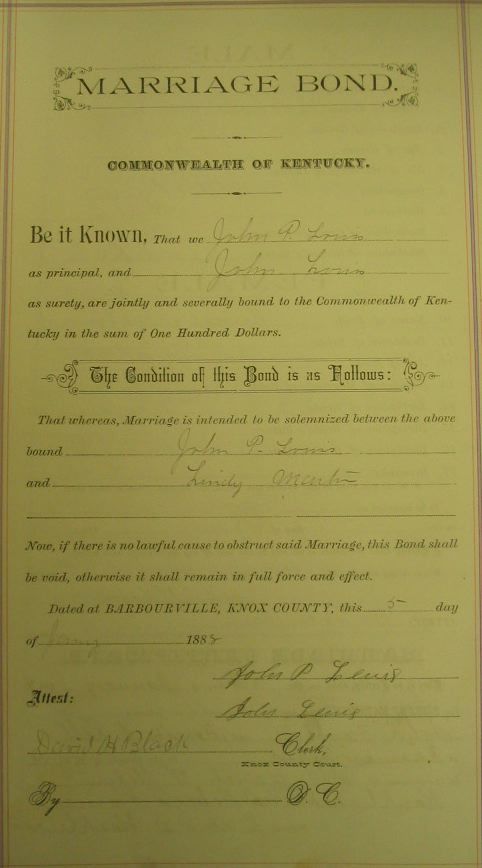 MARRIAGE BOND.
COMMONWEALTH OF KENTUCKY.
Be it Known, That we John P. Louis
as principal, and John Louis
as surety, are jointly and severally bound to the Commonwealth of Ken-
tucky in the sum of One Hundred Dollars.
The Condition of this Bond is as Follows:
That whereas, Marriage is intended to be solemnized between the above
bound John P. Louis
and Lindy Martin
Now, if there is no lawful cause to obstruct said Marriage, this Bond shall
be void, otherwise it shall remain in full force and effect.
Dated at BARBOURVILLE, KNOX COUNTY, this 5 day
of 1888
John P Lewis
Attest:
John Lewis
David H Black Clerk,
Knox County Court.
By D. C.